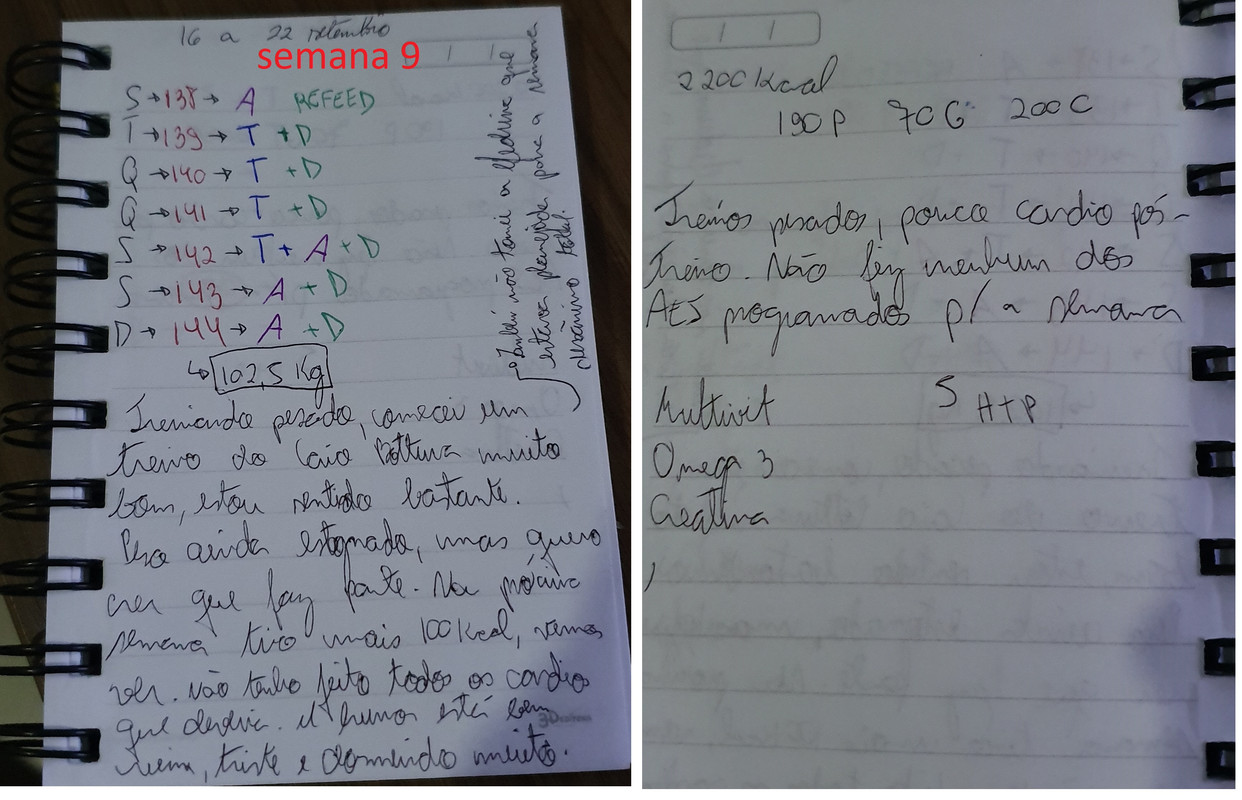 16 a 22 setembro
semana 9
S → 138 → A REFEED
T → 139 → T + D
Q → 140 → T + D
Q → 141 → T + D
S → 142 → T + A + D
S → 143 → A + D
D → 144 → A + D
↳ 102,5 Kg
Também não tomei a efedrina que
estava planejado para a semana
desânimo total.
Treinando pesado, comecei um
treino do Caio Bottura muito
bom, estou sentindo bastante.
Peso ainda estagnado, mas quero
crer que faz parte. Na próxima
semana tiro mais 100 Kcal, vamos
ver. Não tenho feito todos os cardios
que deveria. O humor está bem
ruim, triste e dormindo muito.
2200 Kcal
190 P 70 G 200 C
Treinos pesados, pouco cardio pós-
treino. Não fiz nenhum dos
AEJ programados p/ a semana
Multivit 5 HTP
Omega 3
Creatina